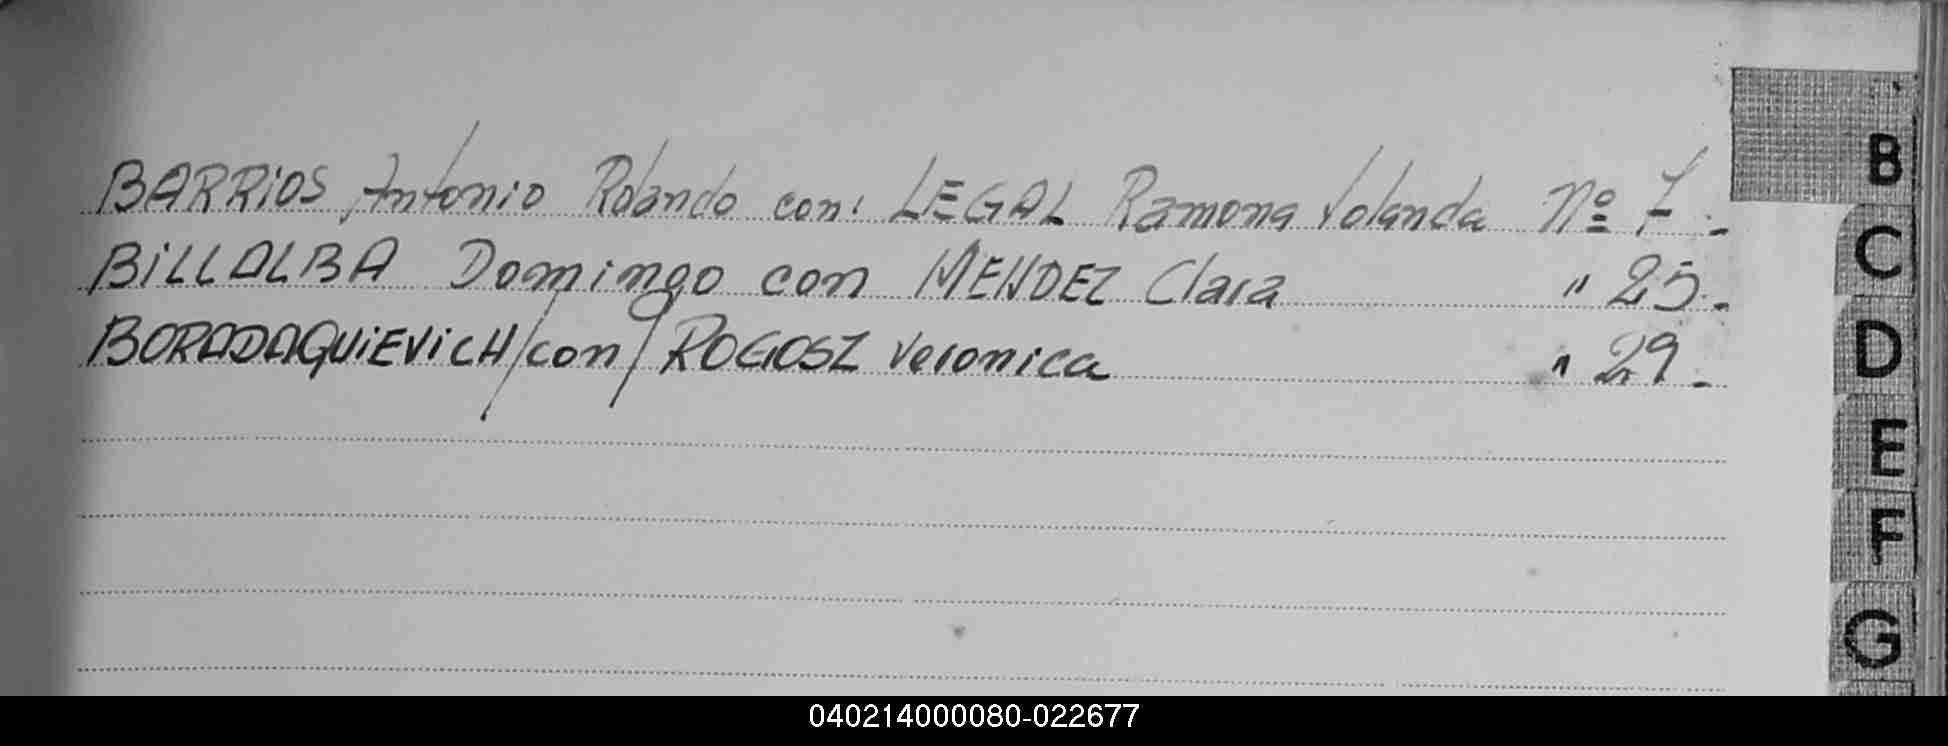 BARRiOS Antonio Rolando con: LEGAL Ramona Yolanda Nº 7.-
BiLLALBA Domingo con MENDEZ Clara " 25.-
BORADAQUiEViCH/con/ROGOSZ Veronica " 29.-
B
C
D
E
F
G
040214000080-022677